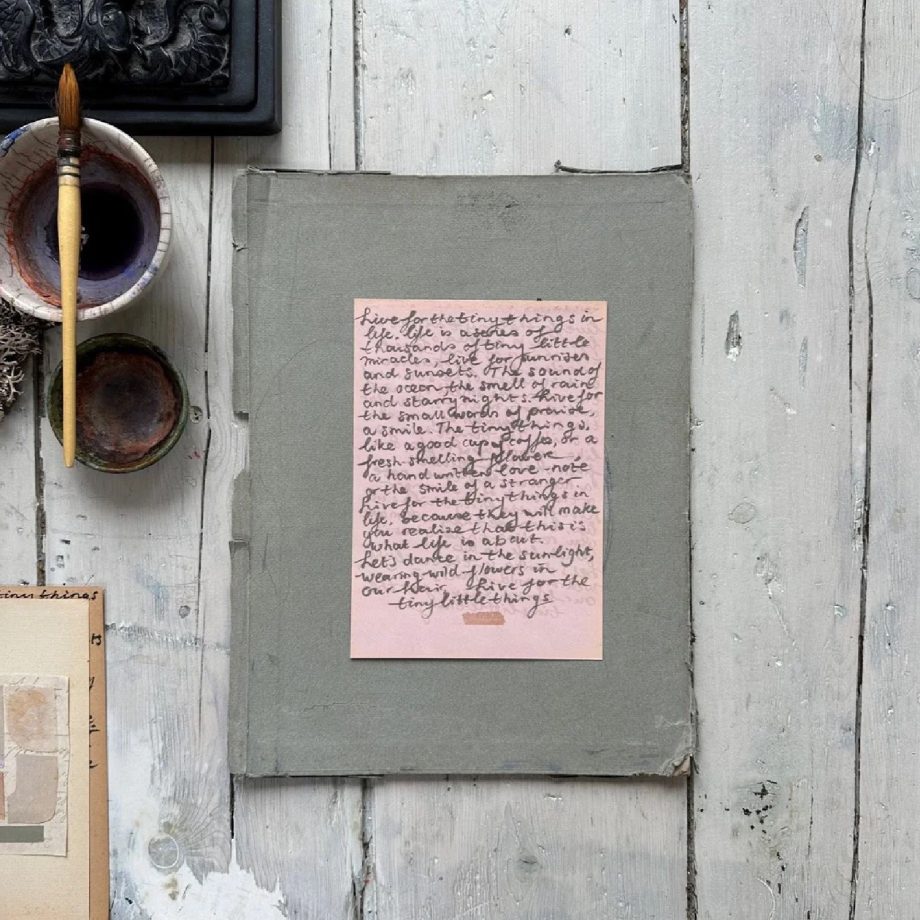 Live for the tiny things in
life. life is a series of
thousands of tiny little
miracles, live for sunrises
and sunsets. The sound of
the ocean the smell of rain
and starry nights. Live for
the small words of praise,
a smile. The tiny things,
like a good cup of coffee, or a
fresh smelling flower
a hand written love-note
or the smile of a stranger
Live for the tiny things in
life, because they will make
you realize that this is
what life is about.
Let's dance in the sunlight,
wearing wild flowers in
our hair Live for the
tiny little things
tiny things